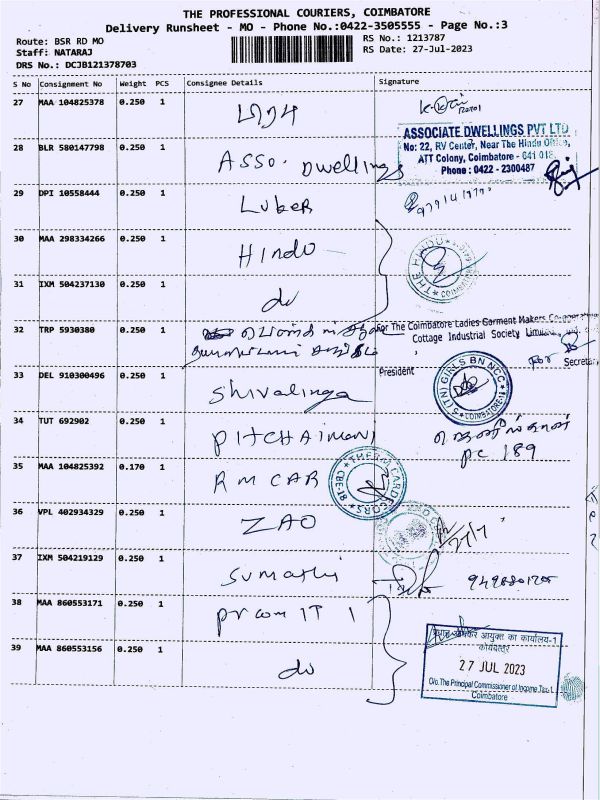 THE PROFESSIONAL COURIERS, COIMBATORE
Delivery Runsheet - MO - Phone No.:0422-3505555 - Page No.:3
Route: BSR RD MO
Staff: NATARAJ
DRS No.: DCJB121378703
RS No.: 1213787
RS Date: 27-Jul-2023
S No Consignment No Weight PCS Consignee Details Signature
27 MAA 104825378 0.250 1
28 BLR 580147798 0.250 1 Asso. Dwellings
ASSOCIATE DWELLINGS PVT LTD
No: 22, RV Center, Near The Hindu Office,
ATT Colony, Coimbatore - 641 018.
Phone : 0422 - 2300487
29 DPI 10558444 0.250 1 Luber
30 MAA 298334266 0.250 1 Hindu
THE HINDU
COIMBATORE
31 IXM 504237130 0.250 1 do
32 TRP 5930380 0.250 1
For The Coimbatore Ladies Garment Makers
Cottage Industrial Society
President Secretary
33 DEL 910300496 0.250 1 Shivalinga
5 (TN) GIRLS BN NCC
COIMBATORE
34 TUT 692902 0.250 1 PITCHAIMANI
PC 189
35 MAA 104825392 0.170 1 RM CAR
CBE-18
36 VPL 402934329 0.250 1 ZAO
27/7
37 IXM 504219129 0.250 1 Sumathi
38 MAA 860553171 0.250 1 Pr com IT 1
39 MAA 860553156 0.250 1 do
आयकर आयुक्त का कार्यालय-1
27 JUL 2023
O/o. The Principal Commissioner of Income Tax-1
Coimbatore